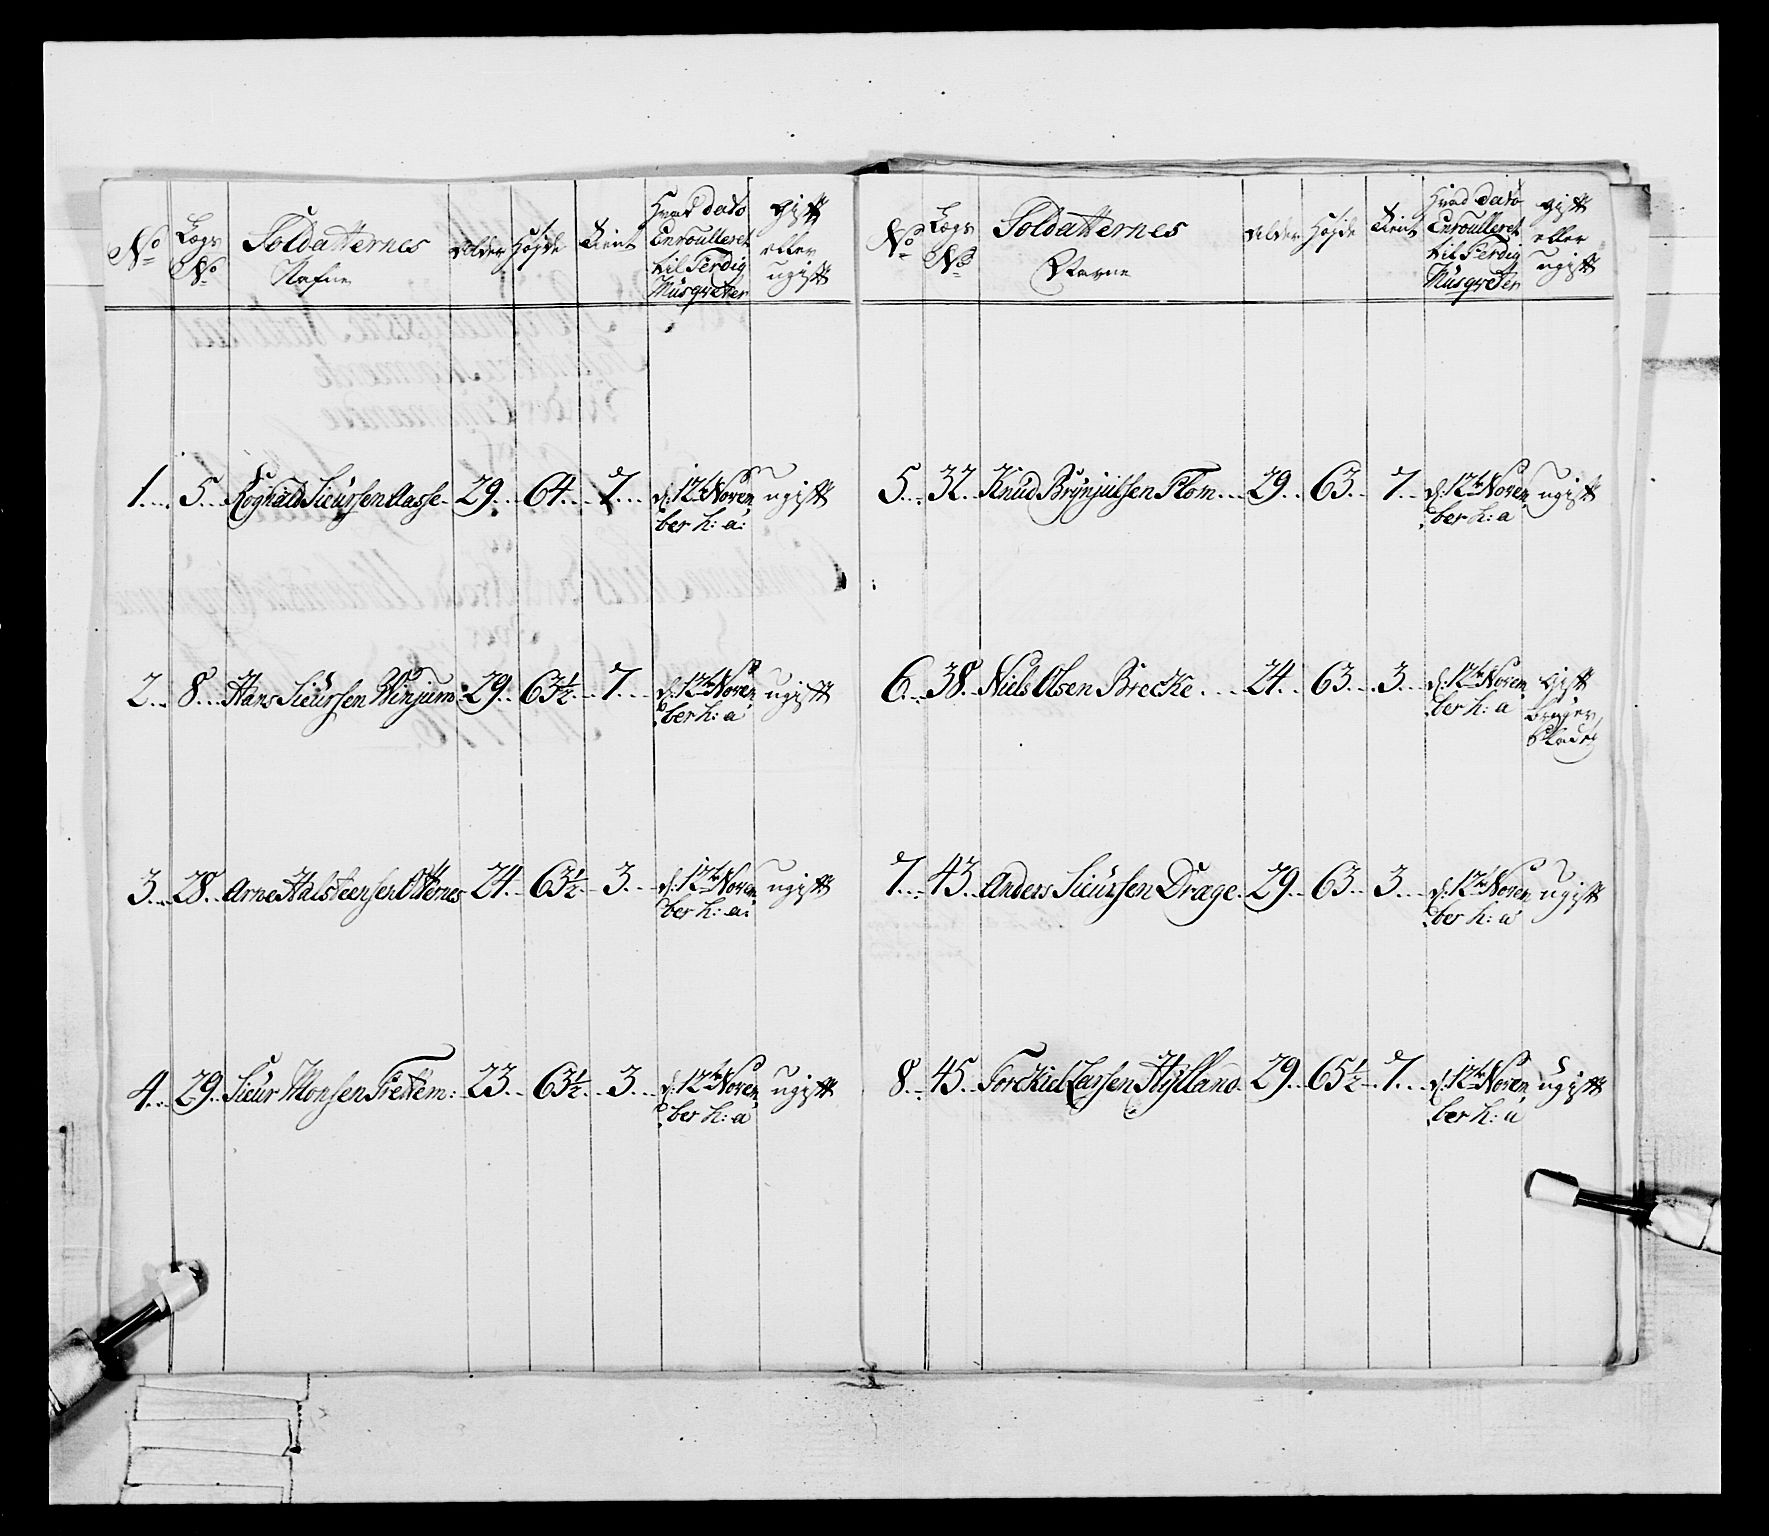 No Lægs No Soldatternes Nafne Alder Højde Tient Hvad dato Enroulleret til Ferdig Musqveter gift eller ugift
1. 5. Roghald Sieursen Aasse. 29. 64. 7. d: 12te Novem ugift
ber h: a:
2. 8. Hans Sieursen Winjum: 29. 63½ 7. d: 12te Novem ugift
ber h: a
3. 28. Arne Halsteensen Otternes 24. 63½ 3. d: 12te Novem ugift
ber h: a:
4. 29. Sieur Monsen Frettem: 23. 63½ 3. d: 12te Novem ugift
ber h: a
No Lægs No Soldatternes Navne Alder Højde Tient Hvad dato Enroulleret til Ferdig Musqveter gift eller ugift
5. 32. Knud Brynjulsen Flom. 29. 63. 7. d: 12te Novem ugift
ber h: a
6. 38. Niels Olsen Brecke. 24. 63. 3. d: 12te Novem gift
ber h: a bruger
Plads
7. 43. Anders Sieursen Drage. 29. 63. 3. d: 12te Novem ugift
ber h: a
8. 45. Torckiel Larsen Hylland. 29. 65½ 7. d: 12te Novem ugift
ber h: a